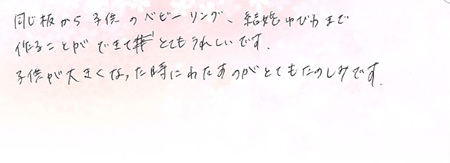 同じ板から子供のベビーリング、結婚ゆびわまで
作ることができてとてもうれしいです。
子供が大きくなった時にわたすのがとてもたのしみです。